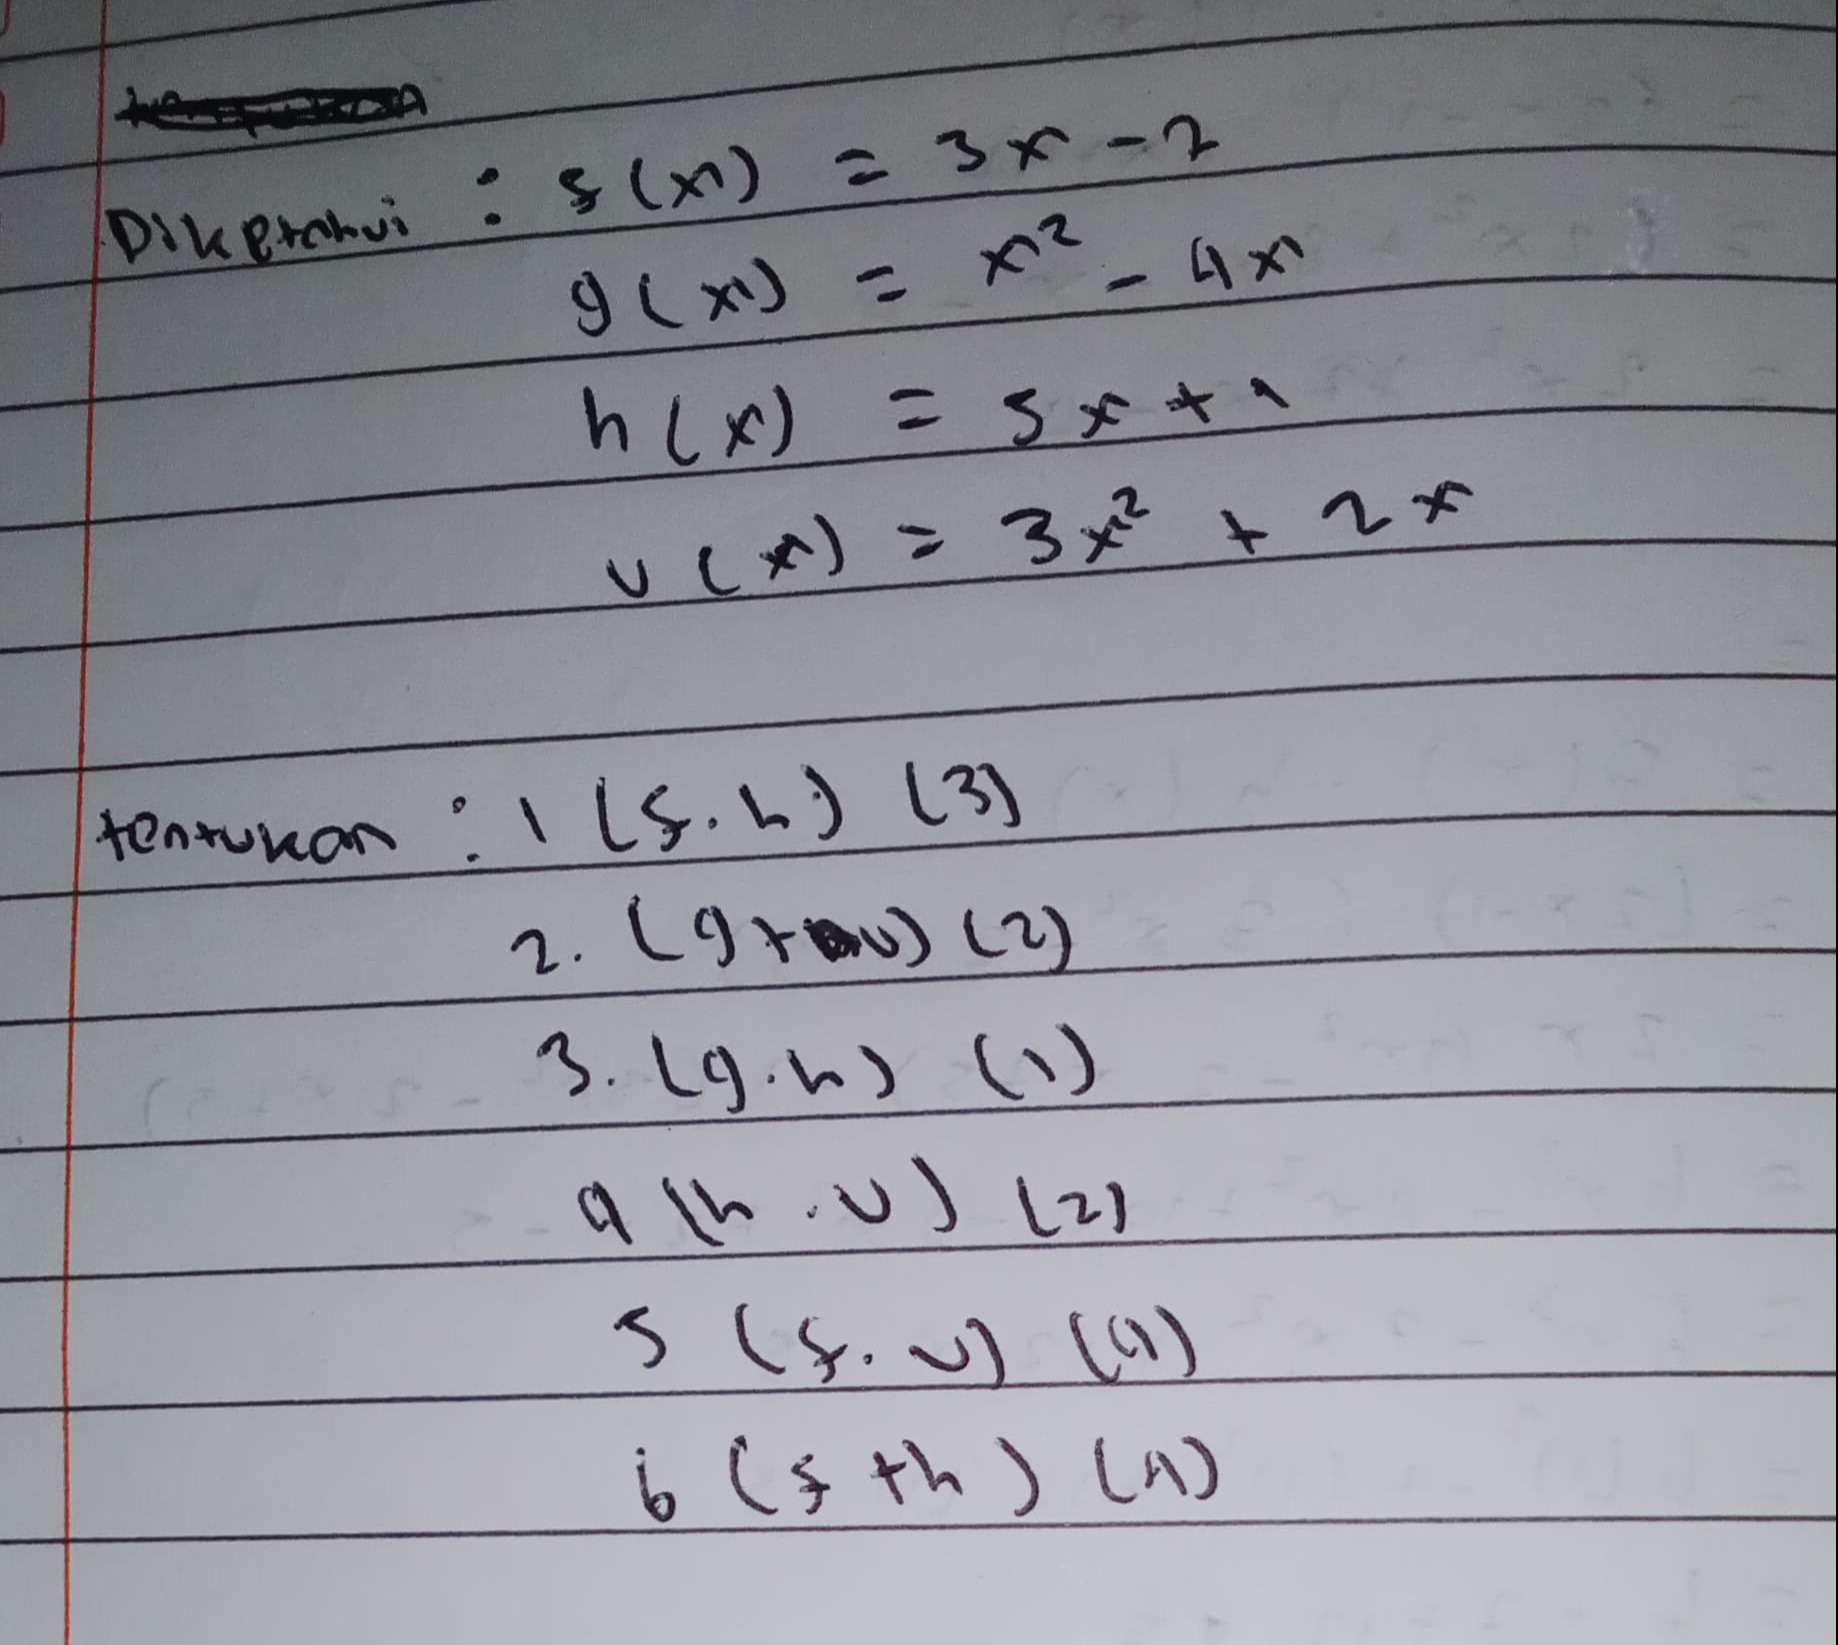 Diketahui : f(x) = 3x - 2
g(x) = x² - 4x
h(x) = 5x + 1
v(x) = 3x² + 2x
tentukan : 1 (f.h) (3)
2. (g+v) (2)
3. (g.h) (1)
4 (h.v) (2)
5 (f.v) (4)
6 (f+h) (4)